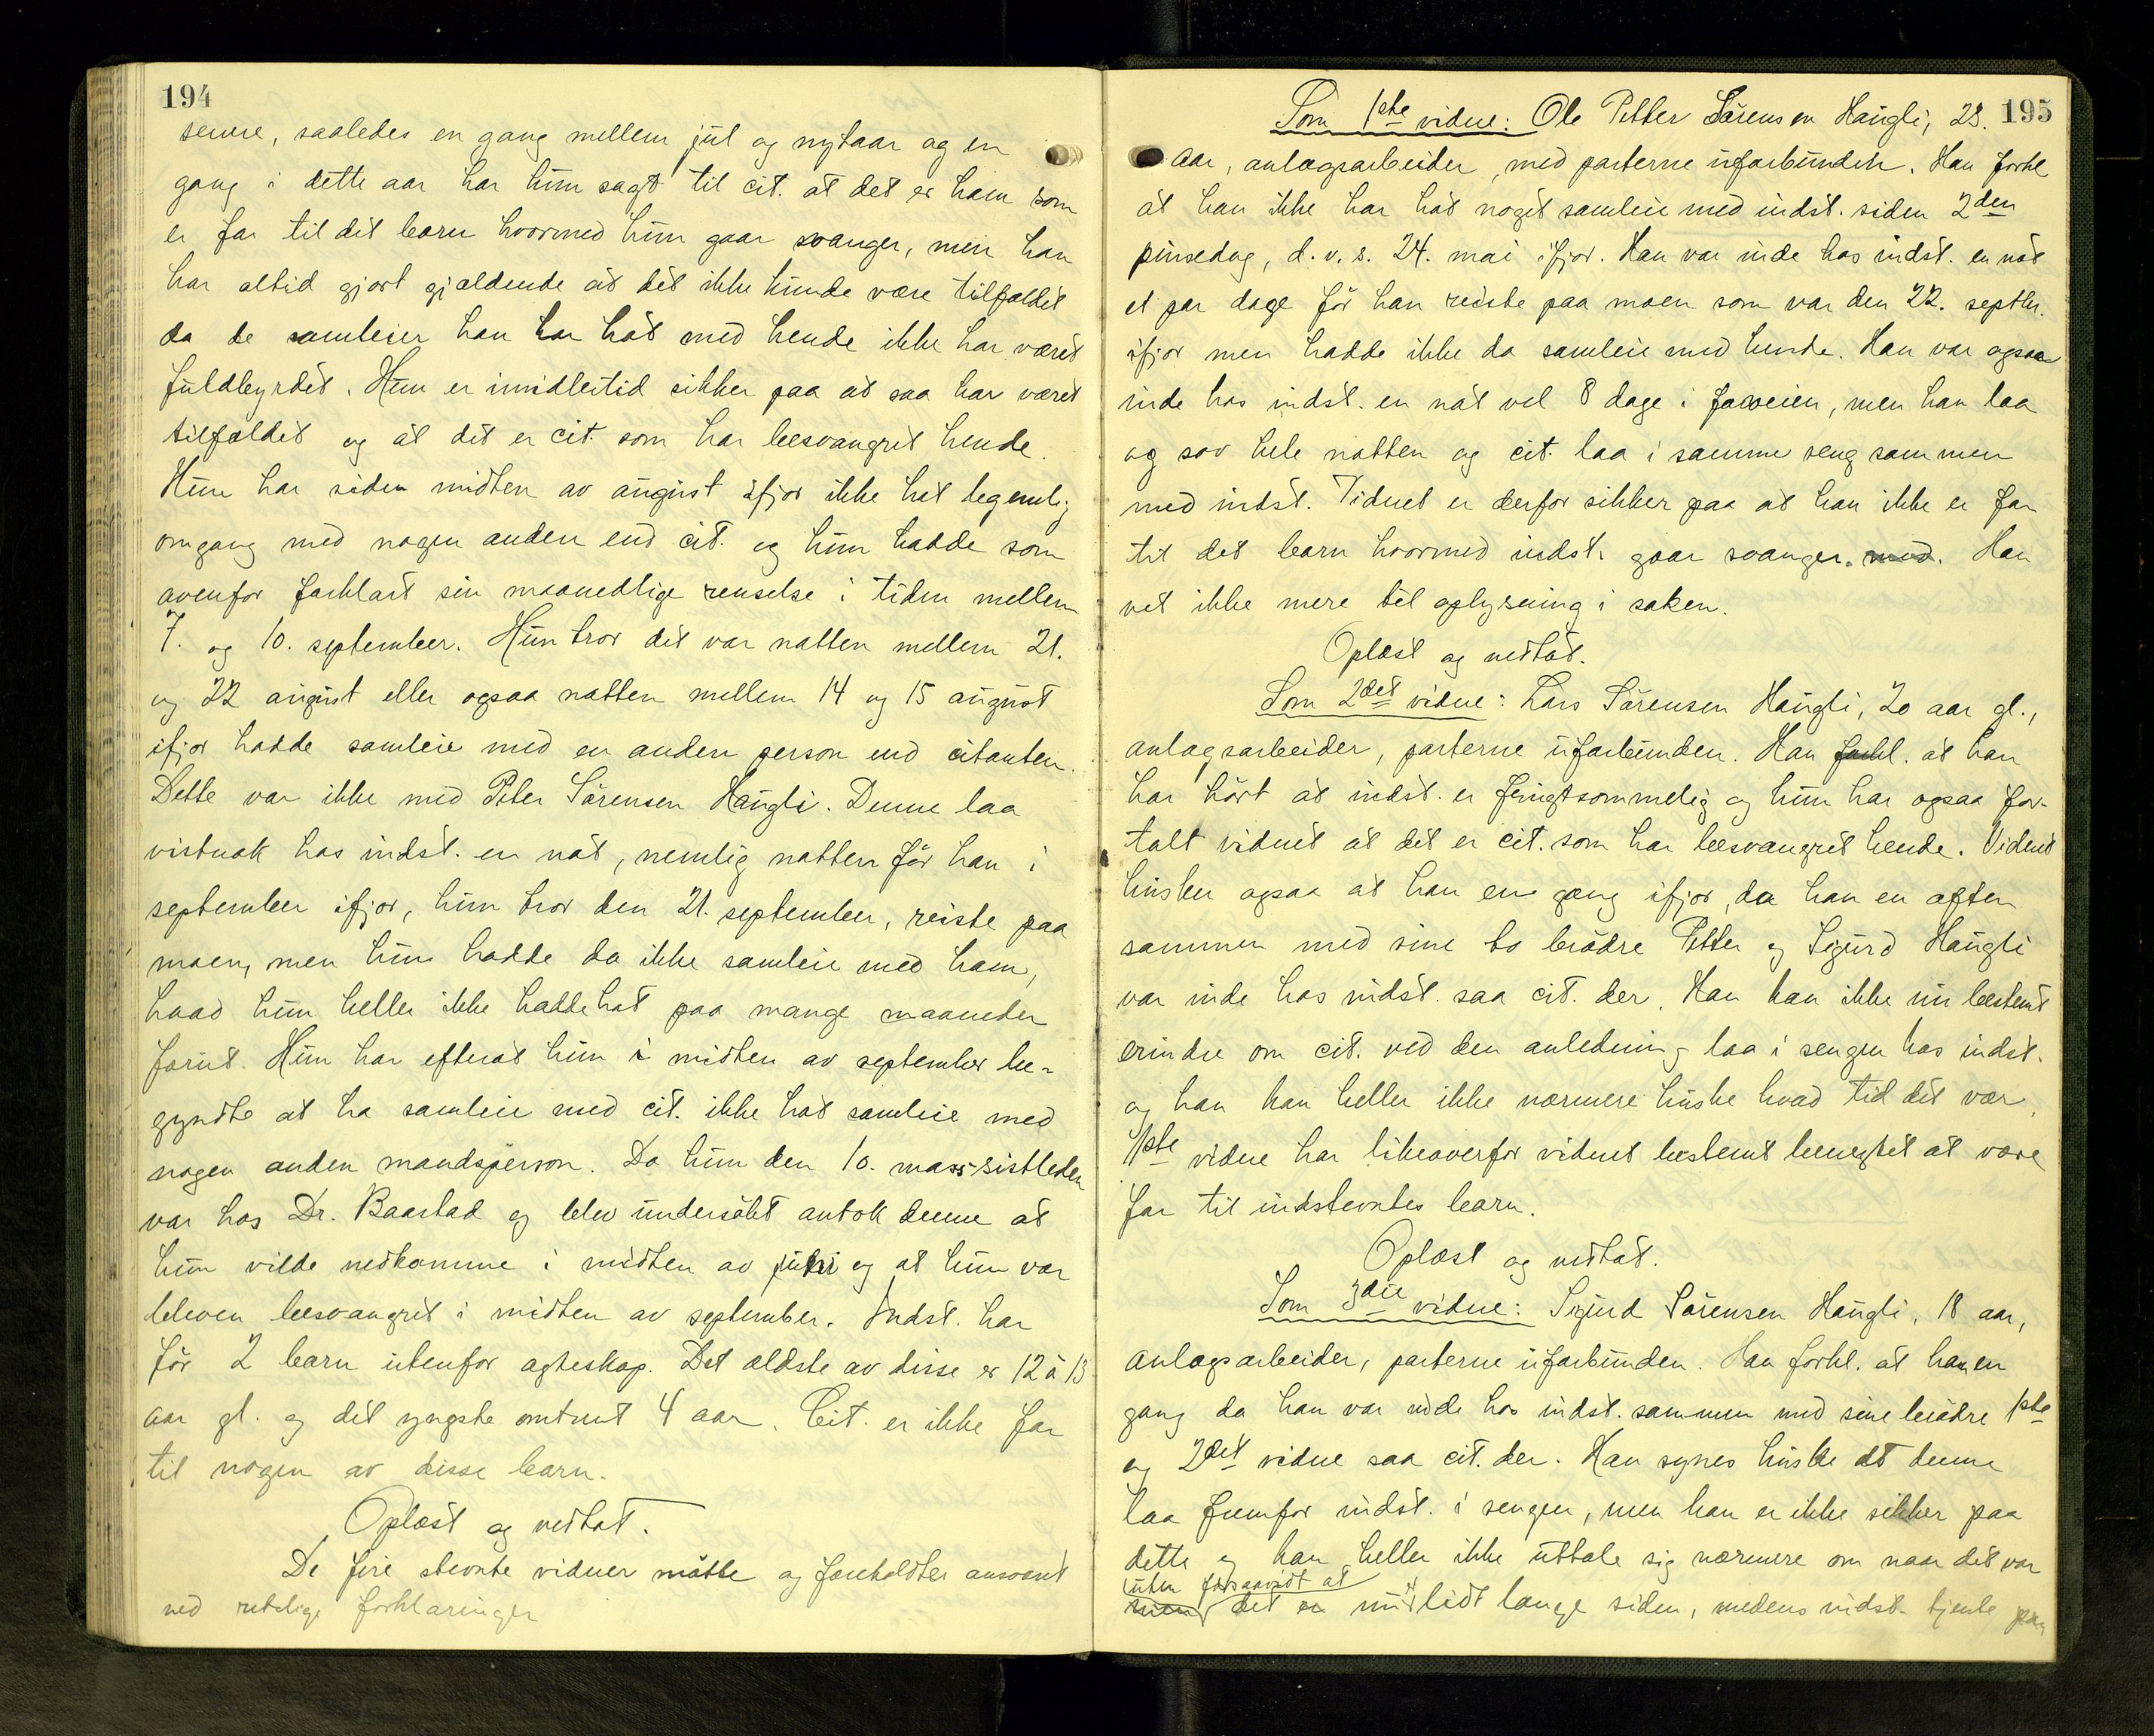 194
senere, saaledes en gang mellem jul og nytaar og en
gang i dette aar har hun sagt til cit. at det er ham som
er far til det barn hvormed hun gaar svanger, men han
har altid gjort gjældende at det ikke kunde være tilfældet
da de samleier han har hat med hende ikke har været
fuldbyrdet. Hun er imidlertid sikker paa at saa har været
tilfældet og at det er cit. som har besvangret hende.
Hun har siden midten av august ifjor ikke hat legemlig
omgang med nogen anden end cit. og hun hadde som
ovenfor forklart sin maanedlige renselse i tiden mellem
7. og 10. september. Hun tror det var natten mellem 21.
og 22 august eller ogsaa natten mellem 14 og 15 august
ifjor hadde samleie med en anden person end citanten.
Dette var ikke med Peter Sörensen Haugli. Denne laa
vistnok hos indst. en nat, nemlig natten för han i
september ifjor, hun tror den 21. september, reiste paa
moen, men hun hadde da ikke samleie med ham,
hvad hun heller ikke hadde hat paa mange maaneder
forut. Hun har efterat hun i midten av september be-
gyndte at ha samleie med cit. ikke hat samleie med
nogen anden mandsperson. Da hun den 10. mars sistleden
var hos Dr. Baarstad og blev undersökt antok denne at
hun vilde nedkomme i midten av juni og at hun var
bleven besvangret i midten av september. Indst. har
för 2 barn utenfor egteskap. Det ældste av disse er 12 à 13
aar gl. og det yngste omtrent 4 aar. Cit. er ikke far
til nogen av disse barn.
Oplæst og vedtat.
De fire stevnte vidner mötte og foreholdtes ansvaret
ved rettslige forklaringer
195
Som 1ste vidne: Ole Petter Sörensen Haugli, 23.
aar, anlægsarbeider, med parterne uforbunden. Han forkl
at han ikke har hat noget samleie med indst. siden 2den
pinsedag, d. v. s. 24. mai ifjor. Han var inde hos indst. en nat
et par dage för han reiste paa moen som var den 22. septbr.
ifjor men hadde ikke da samleie med hende. Han var ogsaa
inde hos indst. en nat vel 8 dage i forveien, men han laa
og sov hele natten og cit. laa i samme seng sammen
med indst. Vidnet er derfor sikker paa at han ikke er far
til det barn hvormed indst. gaar svanger. med. Han
vet ikke mere til oplysning i saken.
Oplæst og vedtat.
Som 2det vidne: Lars Sörensen Haugli, 20 aar gl.,
anlægsarbeider, parterne uforbunden. Han forkl. at han
har hört at indst. er frugtsommelig og hun har ogsaa for-
talt vidnet at det er cit. som har besvangret hende. Vidnet
husker ogsaa at han en gang ifjor, da han en aften
sammen med sine to brödre Petter og Sigurd Haugli
var inde hos indst. saa cit. der. Han kan ikke nu bestemt
erindre om cit. ved den anledning laa i sengen hos indst.
og han kan heller ikke nærmere huske hvad tid det var.
1ste vidne har likeoverfor vidnet bestemt benegtet at være
far til indstevntes barn.
Oplæst og vedtat.
Som 3die vidne: Sigurd Sörensen Haugli, 18 aar,
anlægsarbeider, parterne uforbunden. Han forkl. at han en
gang da han var inde hos indst. sammen med sine brödre 1ste
og 2det vidne saa cit. der. Han synes huske at denne
laa fremfor indst. i sengen, men han er ikke sikker paa
dette og kan heller ikke uttale sig nærmere om naar det var
uten forsaavidt at
men det er nu lidt længe siden, medens indst. tjente paa